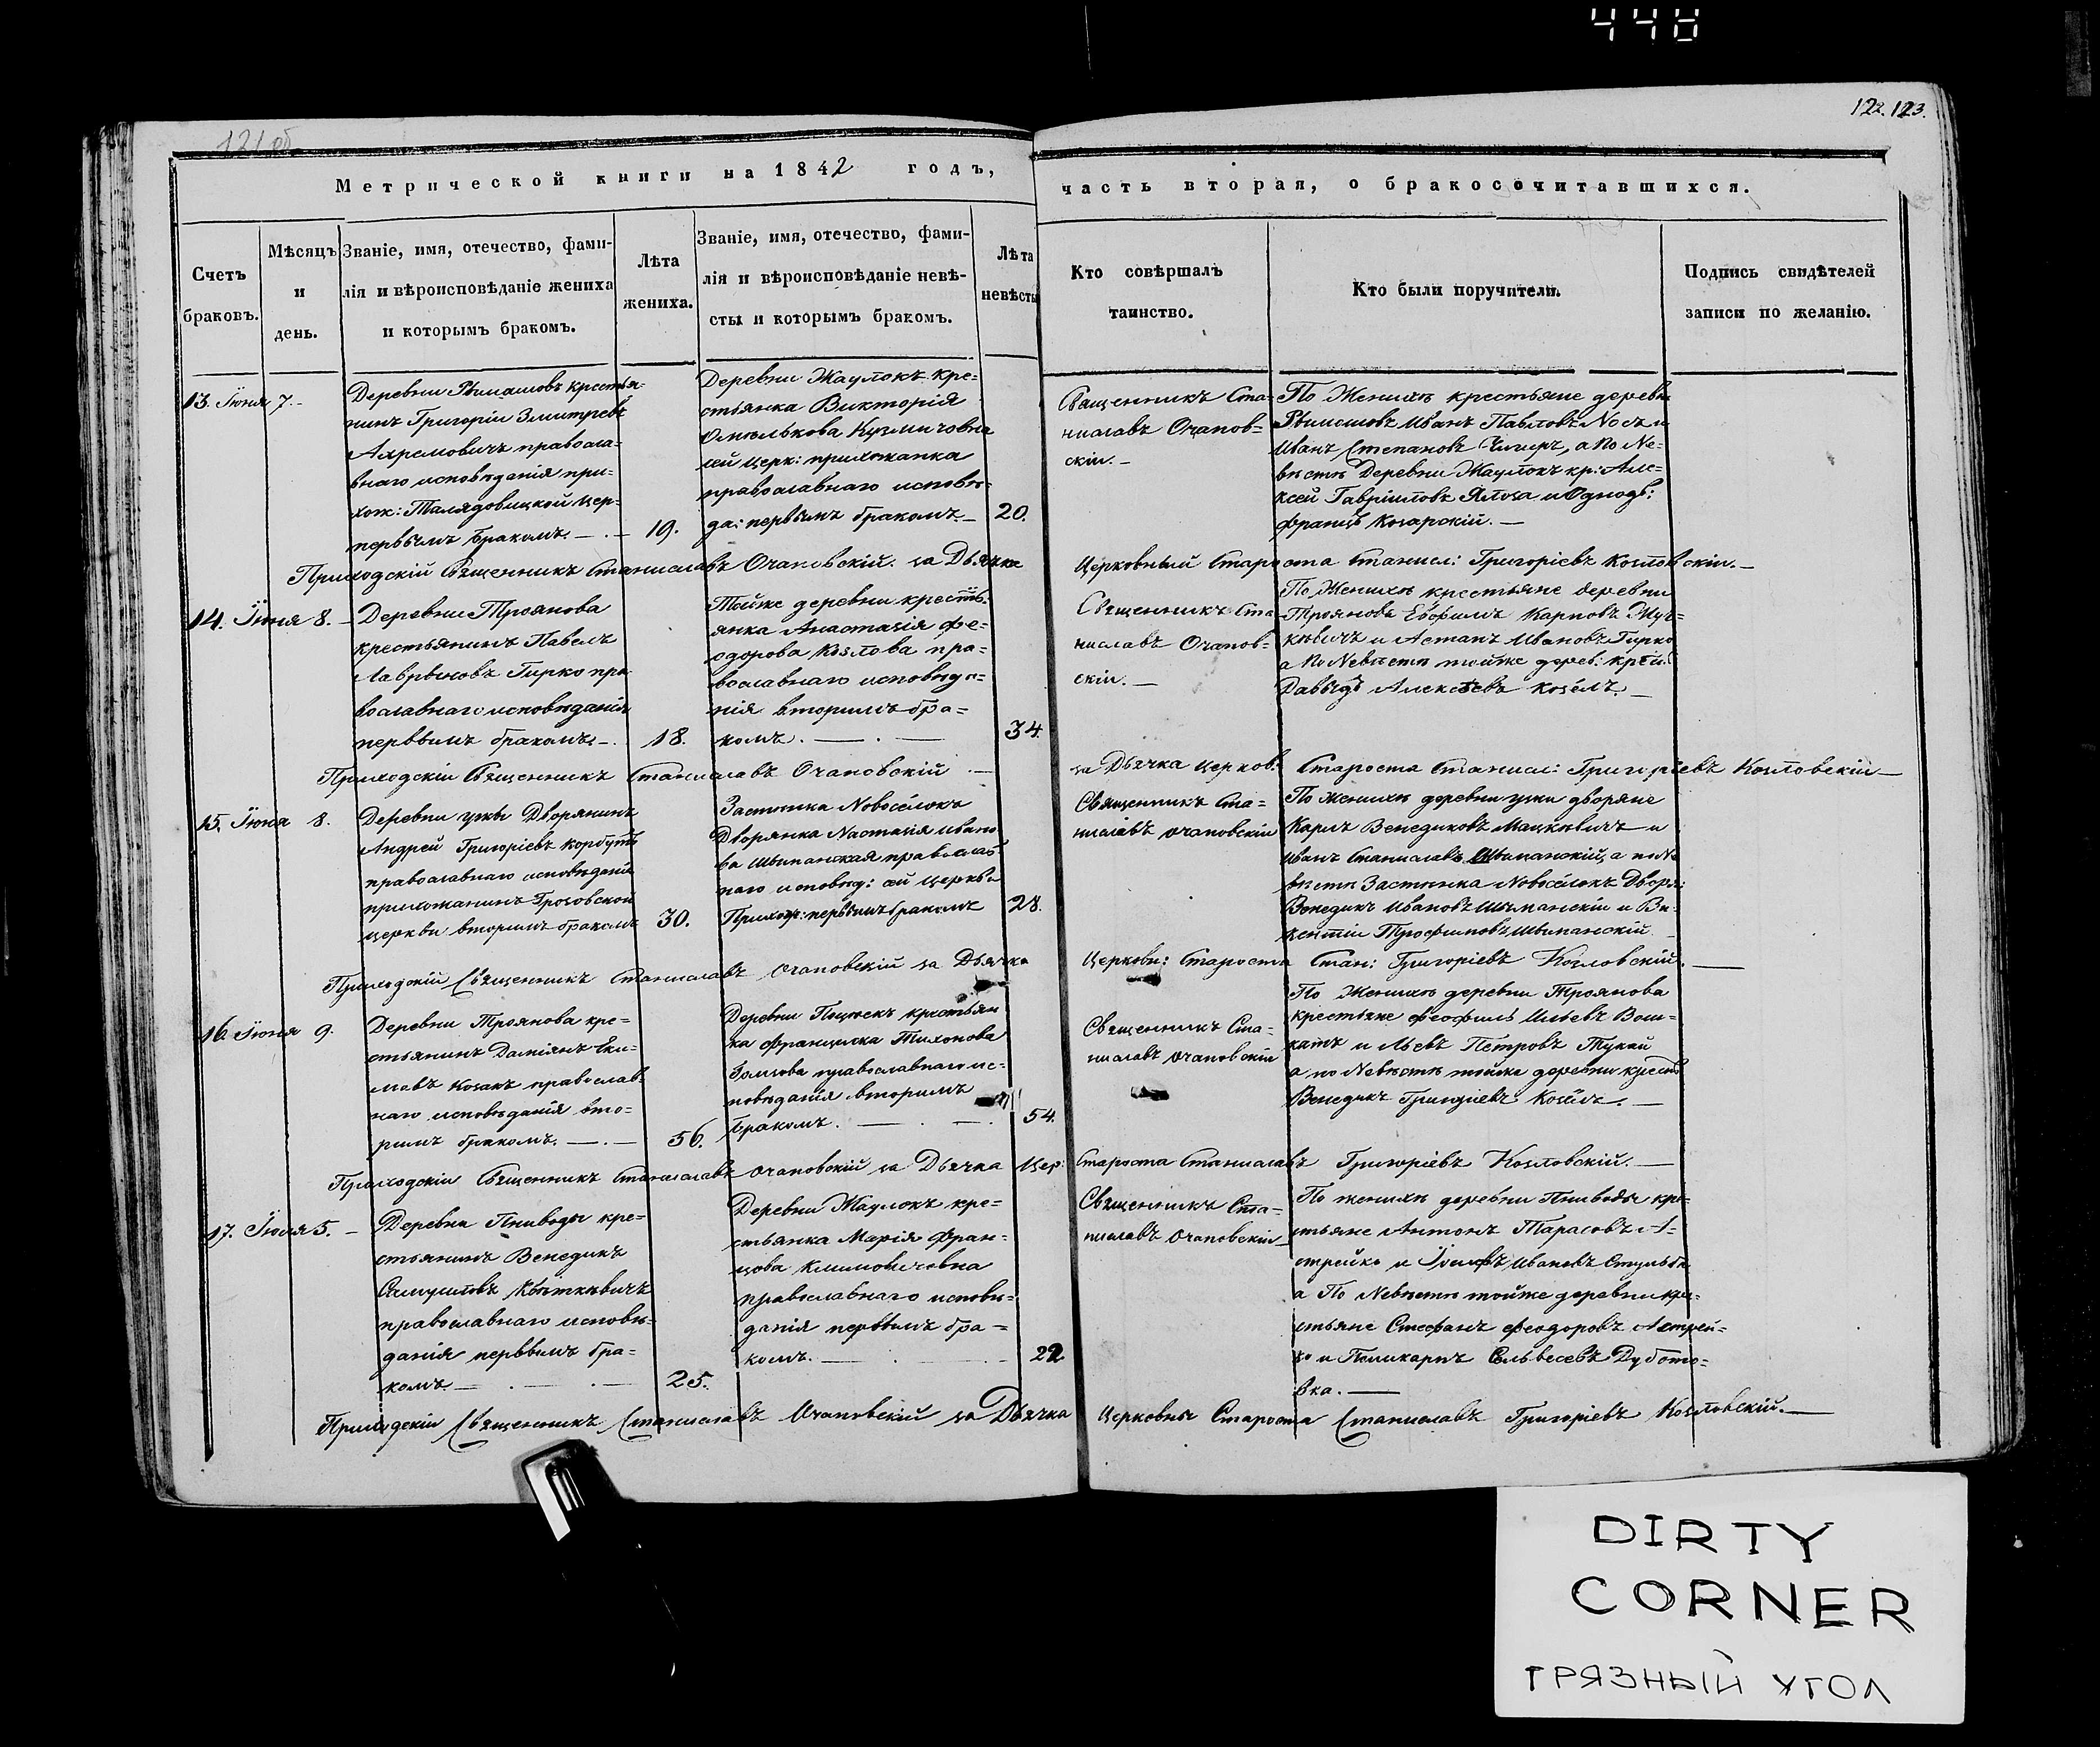 448
121 об
122. 123.
Метрической книги на 1842 годъ,
часть вторая, о бракосочитавшихся.
Счетъ браковъ.
Мѣсяцъ и день.
Званіе, имя, отечество, фами-
лія и вѣроисповѣданіе жениха
и которымъ бракомъ.
Лѣта жениха.
Званіе, имя, отечество, фами-
лія и вѣроисповѣданіе невѣ-
сты и которымъ бракомъ.
Лѣта невѣсты
Кто совѣршалъ
таинство.
Кто были поручители.
Подпись свидѣтелей
записи по желанію.
13. Іюня 7.
Деревни крестья-
нинъ Григорій Змитревъ
Ахремовичъ правосла-
внаго исповѣданія при-
хож: цер-
первымъ бракомъ.
19.
Деревни Жаулокъ кре-
стьянка Викторія
Омелькова Кузмичовна
сей церк: прихожанка
православнаго исповѣ-
да: первымъ бракомъ.
20.
Священникъ Ста-
ниславъ Очапов-
скій.
По Женихѣ крестьяне деревн
Иванъ Павловъ Носъ и
Иванъ Степановъ а по Не-
вѣстѣ Деревни Жаулокъ кр: Але-
ксей Гавріиловъ и Однодв:
Францъ Козарскій.
Приходскій Священникъ Станиславъ Очаповскій. за Дьячка
Церковный Староста Станисл: Григоріевъ Козловскій.
14. Іюня 8.
Деревни Троянова
крестьянинъ Павелъ
Лаврыновъ Гирко пра
вославнаго исповѣданія
первымъ бракомъ.
18.
Тойже деревни кресть-
янка Анастазія Фе-
одорова Козлова пра-
вославнаго исповѣда-
нія вторимъ бра-
комъ.
34.
Священникъ Ста
ниславъ Очапов-
скій.
По Женихѣ крестьяне деревни
Троянова Евфимъ Карповъ Жуч-
кевичъ и Астапъ Ивановъ Гирко
а по Невѣстѣ тойже дерев:
Давыдъ Алексѣевъ Козёлъ
Приходскій Священникъ Станиславъ Очаповскій
за Дьячка церков: Староста Станисл: Григоріевъ Козловскій
15. Іюня 8.
Деревни Дворянинъ
Андрей Григоріевъ Корбутъ
православнаго исповѣданія
прихожанинъ Грозовской
церкви вторимъ бракомъ
30.
Застѣнка Новосёлокъ
Дворянка Настазія Ивано
ва Шыманская православ
наго исповѣд: сей церкви
Прихож: первымъ бракомъ
28.
Священникъ Ста-
ниславъ Очаповскій
По Женихѣ деревни дворяне
Карлъ Венедиковъ Мацкевичъ и
Иванъ Станиславъ Шыманскій, а по Не
вѣстѣ Застѣнка Новосёлокъ Дворя:
Венедикъ Ивановъ Шыманскій и Ви-
кентій Трофимовъ Шыманскій
Приходскій Священникъ Станиславъ Очаповскій за Дьячка
Церковн: Староста Стан: Григоріевъ Козловскій.
16. Іюня 9.
Деревни Троянова кре-
стьянинъ Даміянъ
Козакъ православ-
наго исповѣданія вто-
римъ бракомъ.
56.
Деревни крестьян
ка Францишка Тихонова
православнаго ис-
повѣданія вторимъ
бракомъ.
54.
Священникъ Ста-
ниславъ Очаповскій
По Женихѣ деревни Троянова
крестьяне Феофилъ Ильевъ
и Левъ Петровъ Тукай
а по Невѣстѣ тойже деревни крест
Венедикъ Григоріевъ Козёлъ.
Приходскій Священникъ Станиславъ Очаповскій за Дьячка Цер:
Староста Станиславъ Григоріевъ Козловскій.
17. Іюля 5.
Деревни кре-
стьянинъ Венедикъ
Самуиловъ
православнаго исповѣ-
данія первымъ бра-
комъ.
25.
Деревни Жаулокъ кре-
стьянка Марія Фран-
цова Климовичовна
православнаго исповѣ-
данія первымъ бра-
комъ.
22
Священникъ Ста-
ниславъ Очаповскій
По женихѣ деревни кре-
стьяне Антонъ Тарасовъ А-
стрейко и Іосифъ Ивановъ
а По Невѣстѣ тойже деревни кре-
стьяне Стефанъ Феодоровъ Астрей-
ко и Поликарпъ Сильвесевъ Дубото-
вка.
Приходскій Священникъ Станиславъ Очаповскій за Дьячка
Церковны Староста Станиславъ Григоріевъ Козловскій.
DIRTY
CORNER
ГРЯЗНЫЙ УГОЛ